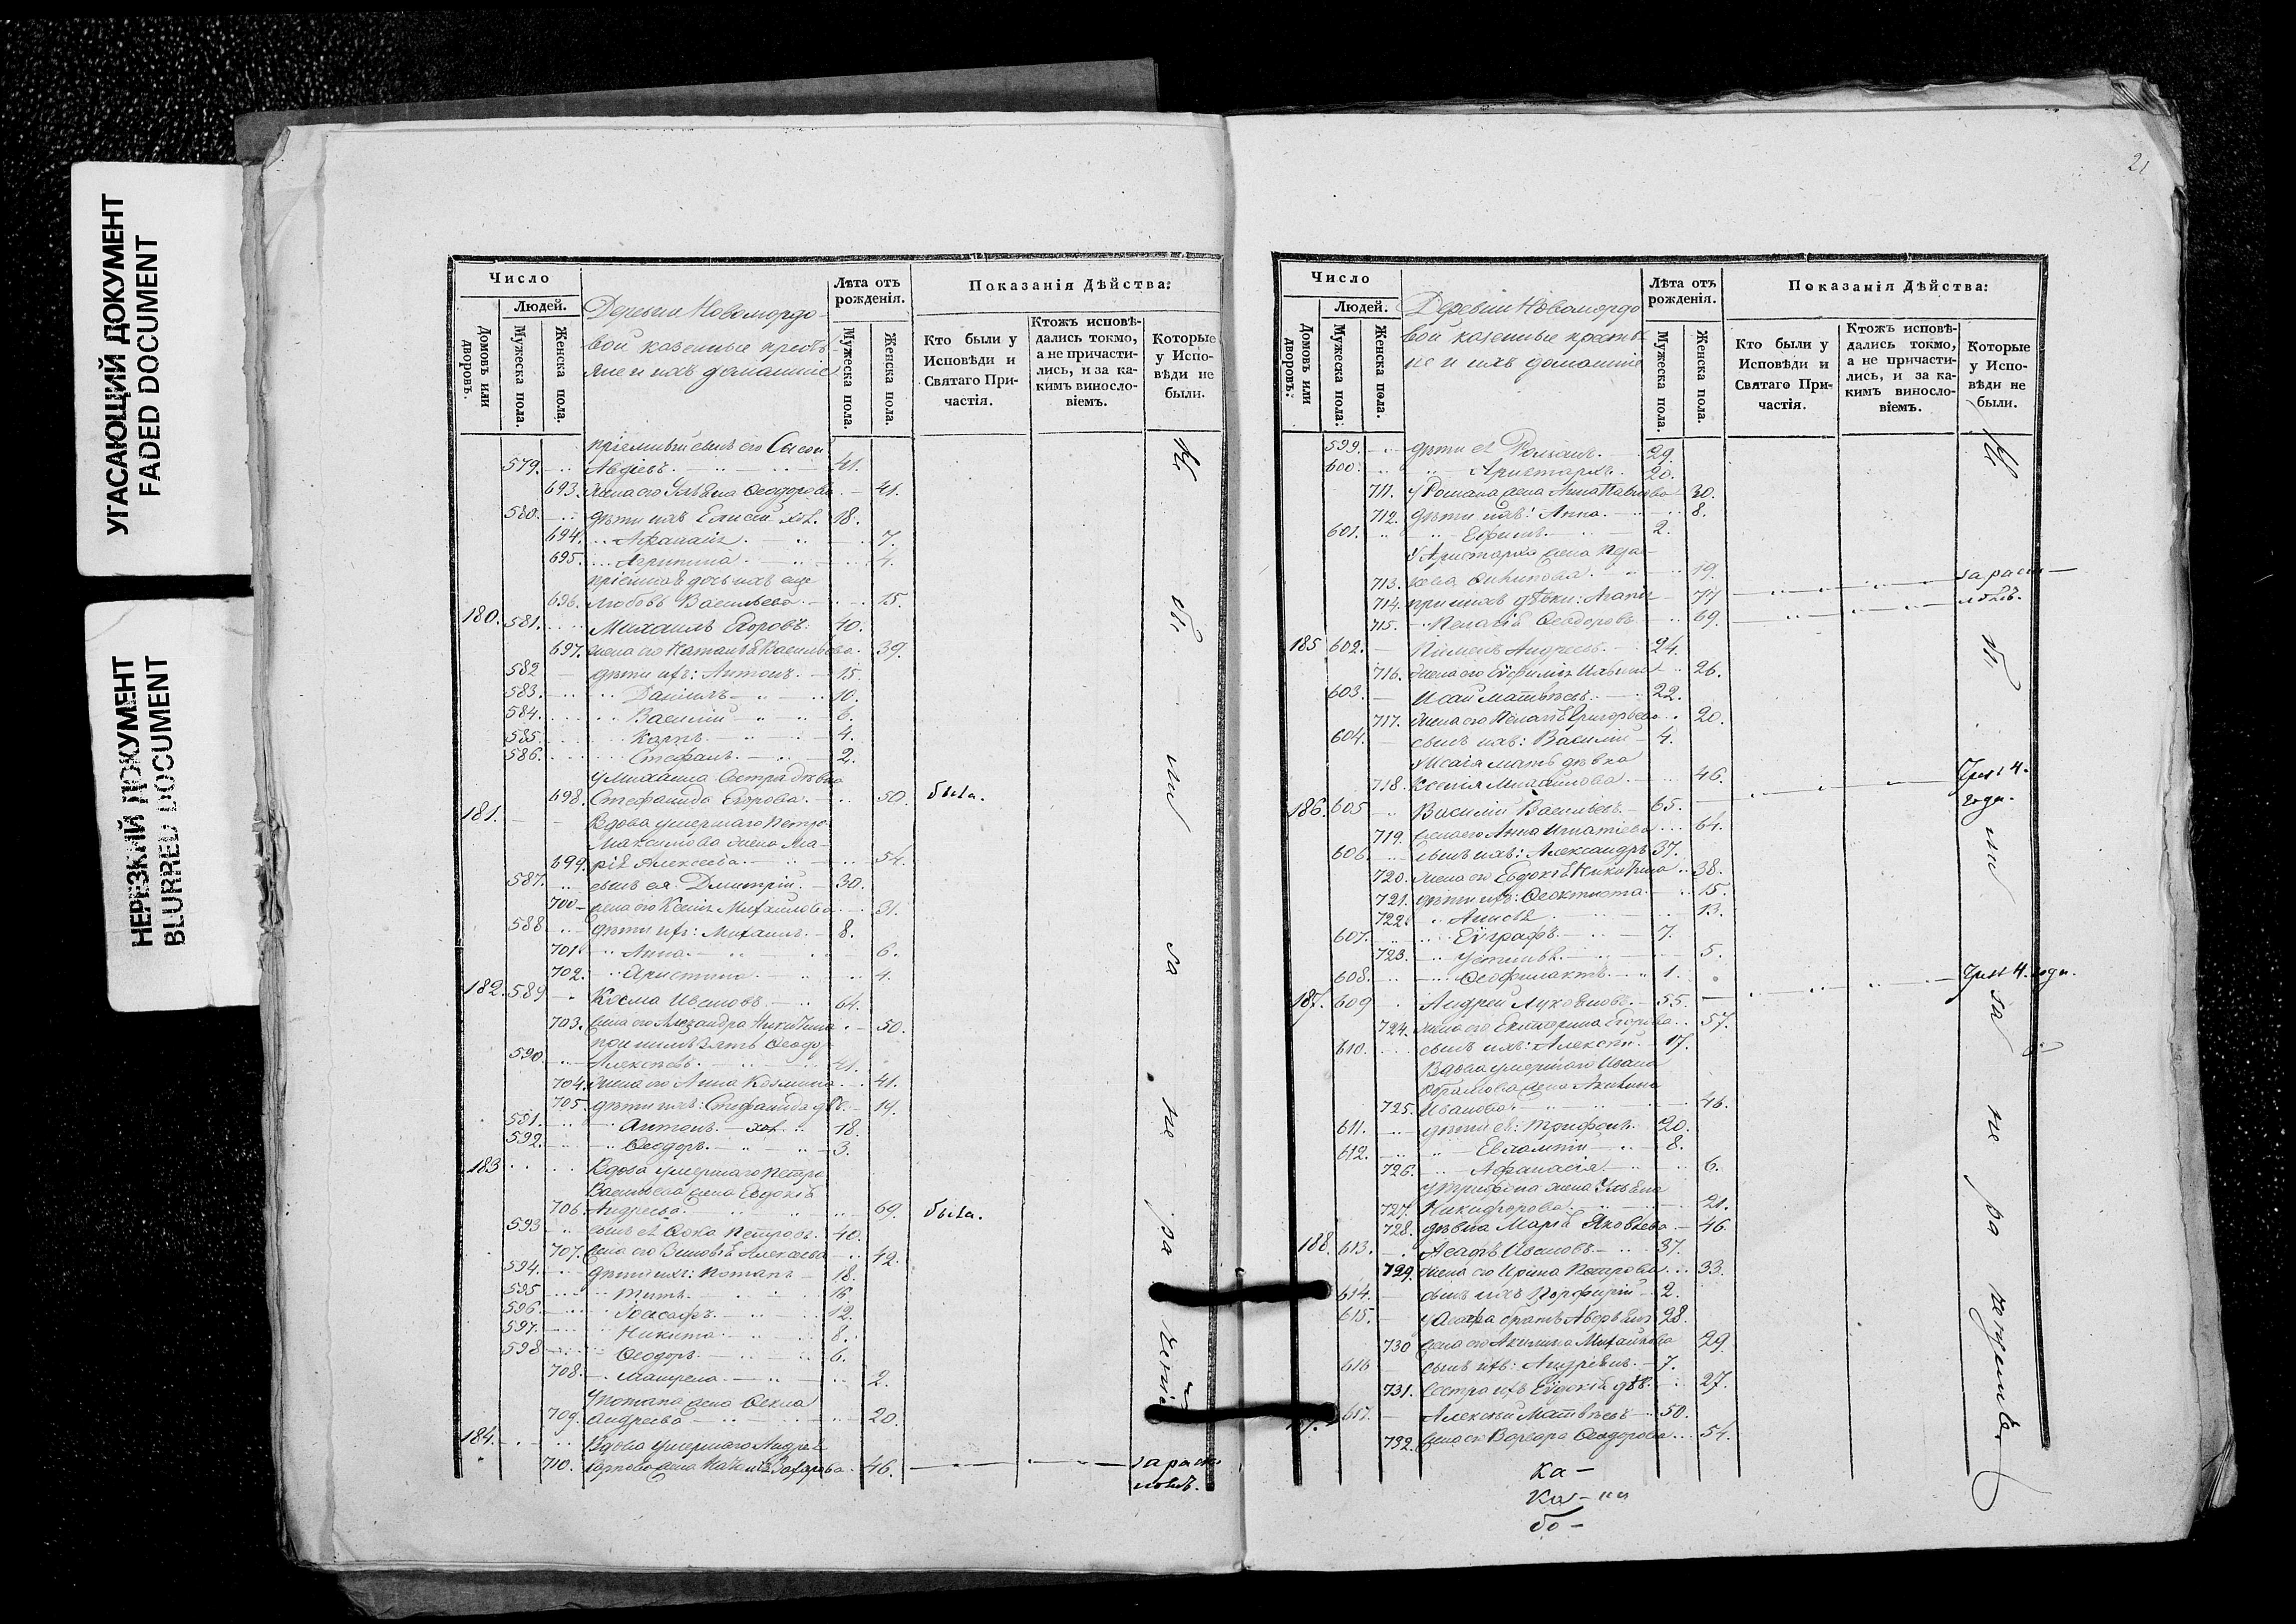 УГАСАЮЩИЙ ДОКУМЕНТ
FADED DOCUMENT
НЕРЕЗКИЙ ДОКУМЕНТ
BLURRED DOCUMENT
Число
Людей.
Домовъ или дворовъ.
Мужеска пола.
Женска пола.
Деревни Новомордо-
вой казенные крестья-
не и ихъ домашние
Лѣта отъ рожденія.
Мужеска пола.
Женска пола.
Показанія Дѣйства:
Кто были у Исповѣди и Святаго При-частія.
Ктожъ исповѣ-дались токмо, а не причасти-лись, и за ка-кимъ винословіемъ.
Которые у Испо-вѣди не были.
пріемный сынъ его Сысой
579. Авдіевъ 41.
693. жена его Ульяна Ѳеодорова 41.
580. дѣти ихъ Елисей хол. 18.
694. 7.
695. Агрипина 4.
696. Любовь Васильева 15.
180. 581. Михаилъ Егоровъ 40.
697. жена его Наталья Васильева 39.
582 дѣти ихъ: Антонъ 15.
583. Даніилъ 10.
584. Василій 6.
585. Карпъ 4.
586. Стефанъ 2.
у Михаила сестра дѣвка
698. Стефанида Егорова 50. была.
181. Вдова умершаго Петра
Максимова жена Ма-
699. рія Алексеева 54.
587. сынъ ея Дмитрій 30.
700 жена его Ксенія Михайлова 31.
588 дѣти ихъ: Михаилъ 8.
701. Анна 6.
702. Христина 4.
182. 589 Косма Ивановъ 64.
703. жена его Александра Никитина 50.
при нихъ зять Ѳеодоръ
590. Алексѣевъ 41.
704. жена его Анна Козмина 41.
705. дѣти ихъ: Стефанида дѣв. 19.
591. Антонъ хол. 18.
592. Ѳеодоръ 3.
183 Вдова умершаго Петра
Васильева жена Евдокія
706. Андреева 69. была.
593 сынъ ея Ѳока Петровъ 40.
707. жена его Зиновія Алексеева 42.
594. дѣти ихъ: Потапъ 18.
595 Титъ 16
596 Іоасафъ 12.
597. Никита 8.
598 Ѳеодоръ 6.
708. Матрена 2.
у Потапа жена Ѳекла
709. Андреева 20.
184. Вдова умершаго Андрея
710. Карпова жена Наталья Захарова 46. за раско-
ломъ.
Не были за нерачені
21
Число
Людей.
Домовъ или дворовъ:
Мужеска пола:
Женска пола.
Деревни Новомордо
вой казенные крестья-
не и ихъ домашние
Лѣта отъ рожденія.
Мужеска пола.
Женска пола.
Показанія Дѣйства:
Кто были у Исповѣди и Святаго При-частія.
Ктожъ исповѣ-дались токмо, а не причасти-лись, и за ка-кимъ винословіемъ.
Которые у Испо-вѣди не были.
599. дѣти ея Романъ 29.
600. Аристархъ 20.
711. у Романа жена Анна Павлова 30.
712. дѣти ихъ: Анна 8.
601. Ефимъ 2.
у Аристарха жена Пела-
713. 19.
714. при нихъ дѣвки: Агапія 77 за раско-
715. Пелагія Ѳеодорова 69. ломъ.
185 602. Пименъ Андреевъ 24.
716. жена его Евфимія Ильина 26.
603. Исай Матвѣевъ 22.
717. жена его Пелагія Григорьева 20.
604. сынъ ихъ: Василій 4.
у Исаія мать дѣвка
718. Ксенія Михайлова 46.
186. 605 Василій Васильевъ 65. Чрезъ 4. года.
719. жена его Анна Игнатіева 64.
606. сынъ ихъ: Александръ 37.
720. жена его Евдокія Никитина 38.
721. дѣти ихъ: Ѳеоктиста 15.
722. Анисія 13.
607. Евграфъ 7.
723. Устинья 5.
608. Ѳеофилактъ 1.
187. 609 Андрей Лукояновъ 55. Чрезъ 4. года.
724. жена его Екатерина Егорова 57.
610. сынъ ихъ: Алексѣй 17.
Вдова умершаго Ивана
Абрамова жена Акилина
725. Иванова 46.
611. дѣти ея: Трифонъ 20.
612. Евлампій 8.
726. Афанасія 6.
у Трифона жена Ульяна
727. Никифорова 21.
728. дѣвка Марія Яковлева 46
188. 613. Асафъ Ивановъ 37.
729. жена его Ирина Назарова 33.
614. сынъ ихъ Порфирій 2.
615. у Асафа братъ Аверьянъ 28.
730 жена его Акилина Михайлова 29
616 сынъ ихъ: Андріянъ 7.
731. сестра ихъ Евдокія дѣв. 27.
617. Алексѣй Матвѣевъ 50.
732. жена его Варвара Ѳеодорова 54.
Не были за нераченіемъ
ка-
ка-
бо-